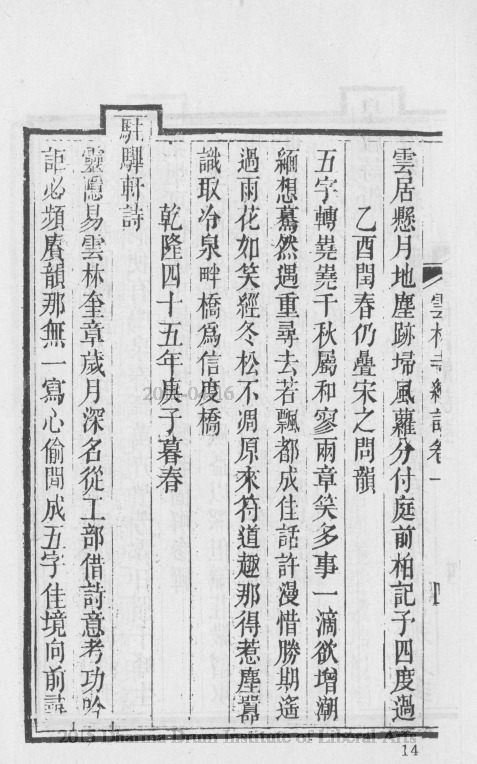 雲林寺續誌卷一
四
雲居懸月地塵跡埽風蘿分付庭前柏記子四度過
乙酉閏春仍疊宋之問韻
五字轉嶤嶤千秋屬和寥兩章笑多事一滴欲增潮
緬想驀然遇重尋去若飄都成佳話許漫惜勝期遙
過雨花如笑經冬松不凋原來符道趣那得惹塵囂
識取冷泉畔橋爲信度橋
乾隆四十五年庚子暮春
駐蹕軒詩
靈隱易雲林奎章歲月深名從工部借詩意考功吟
詎必頻賡韻那無一寫心偷閒成五字佳境向前尋
2015 Dharma Drum Institute of Liberal Arts
14